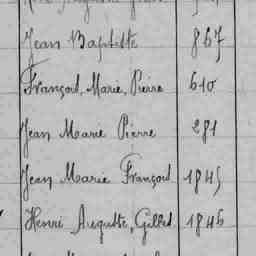 Jean Baptiste 867
François, Marie, Pierre 610
Jean Marie Pierre 281
Jean Marie François 1845
Henri Auguste, Gilbert 1846